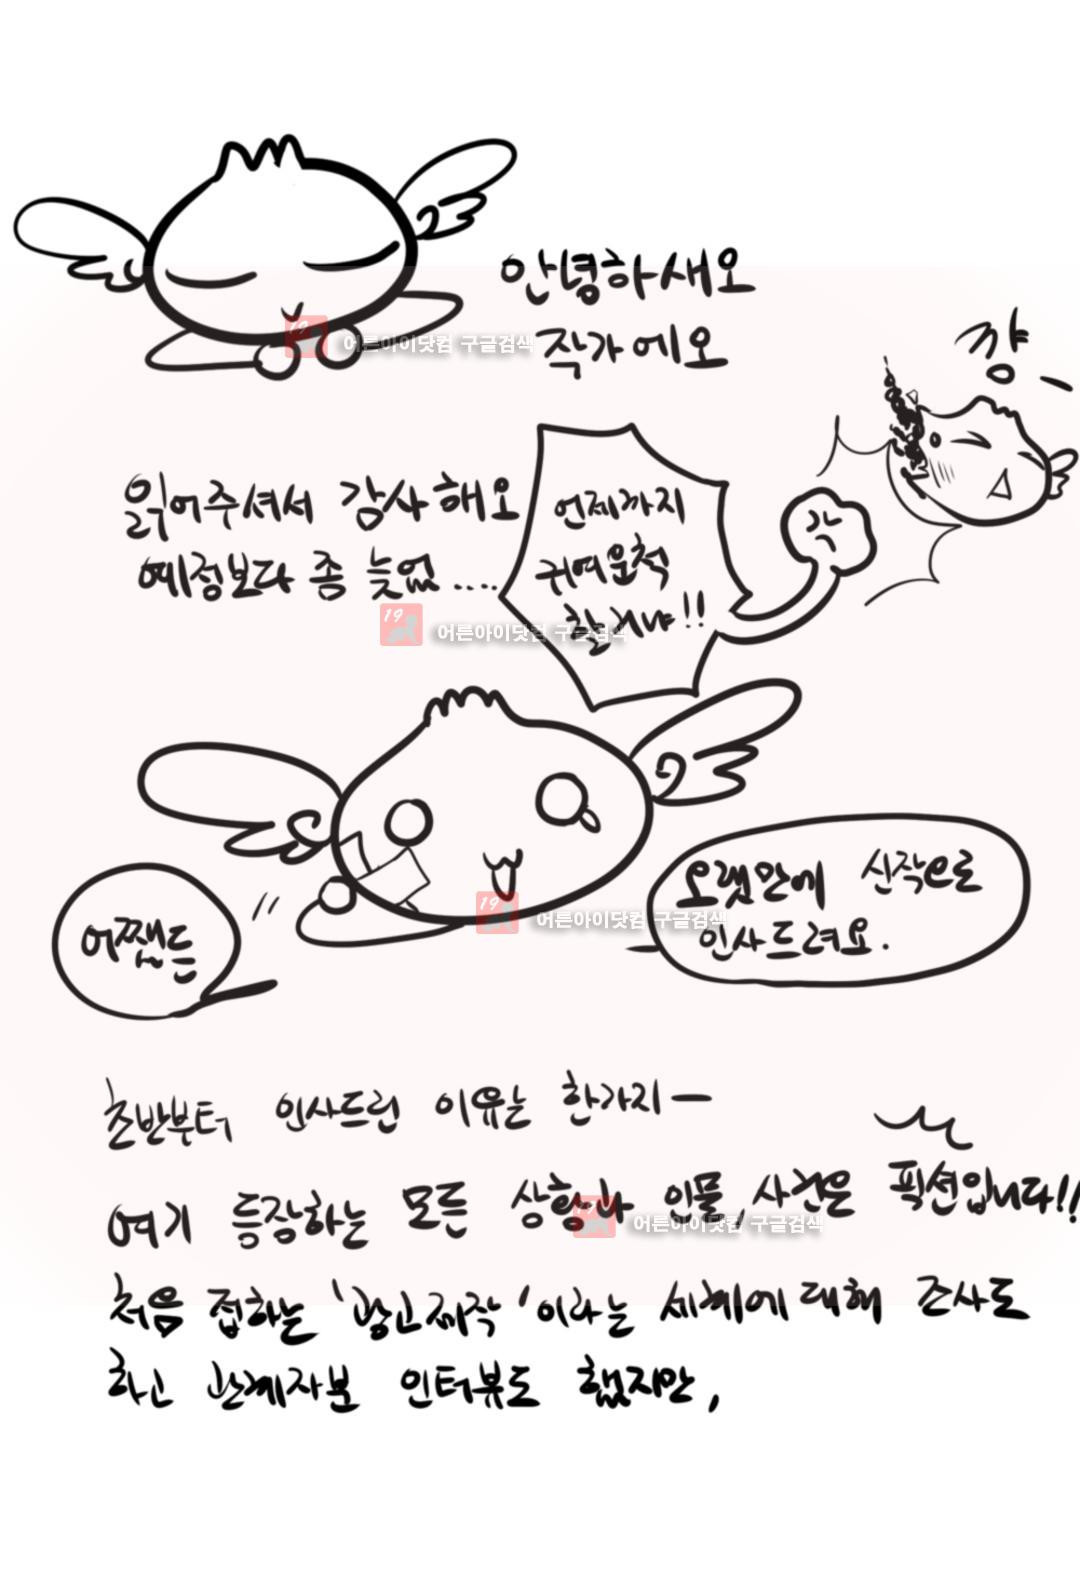 안녕하새오
작가에오
걍
읽어주셔서 감사해오
예정보다 좀 늦었....
언제까지
귀여운척
할거냐!!
각
어쨌든
오랬만에 신작으로
인사드려요.
초반부터 인사드린 이유는 한가지ㅡ
여기 등장하는 모든 상황과 인물, 사건은 픽션입니다!!
처음 접하는 '광고제작'이라는 세계에 대해 조사도
하고 관계자분 인터뷰도 했지만,
19 어른아이닷컴 구글검색
19 어른아이닷컴 구글검색
19 어른아이닷컴 구글검색
19 어른아이닷컴 구글검색